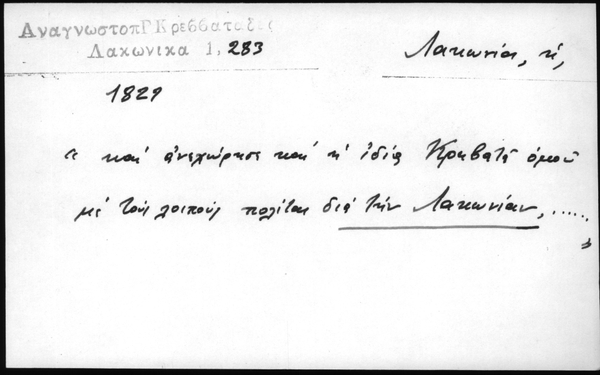 ΑναγνωστοπΓΚρεββαταδες
Λακωνικα 1, 283
Λακωνία, ἡ,
1829
" καί ἀνεχώρησε καί ἡ ἰδία Κρηβατᾶ ὁμοῦ
μέ τούς λοιπούς πολίτας διά τήν Λακωνίαν, ......
"